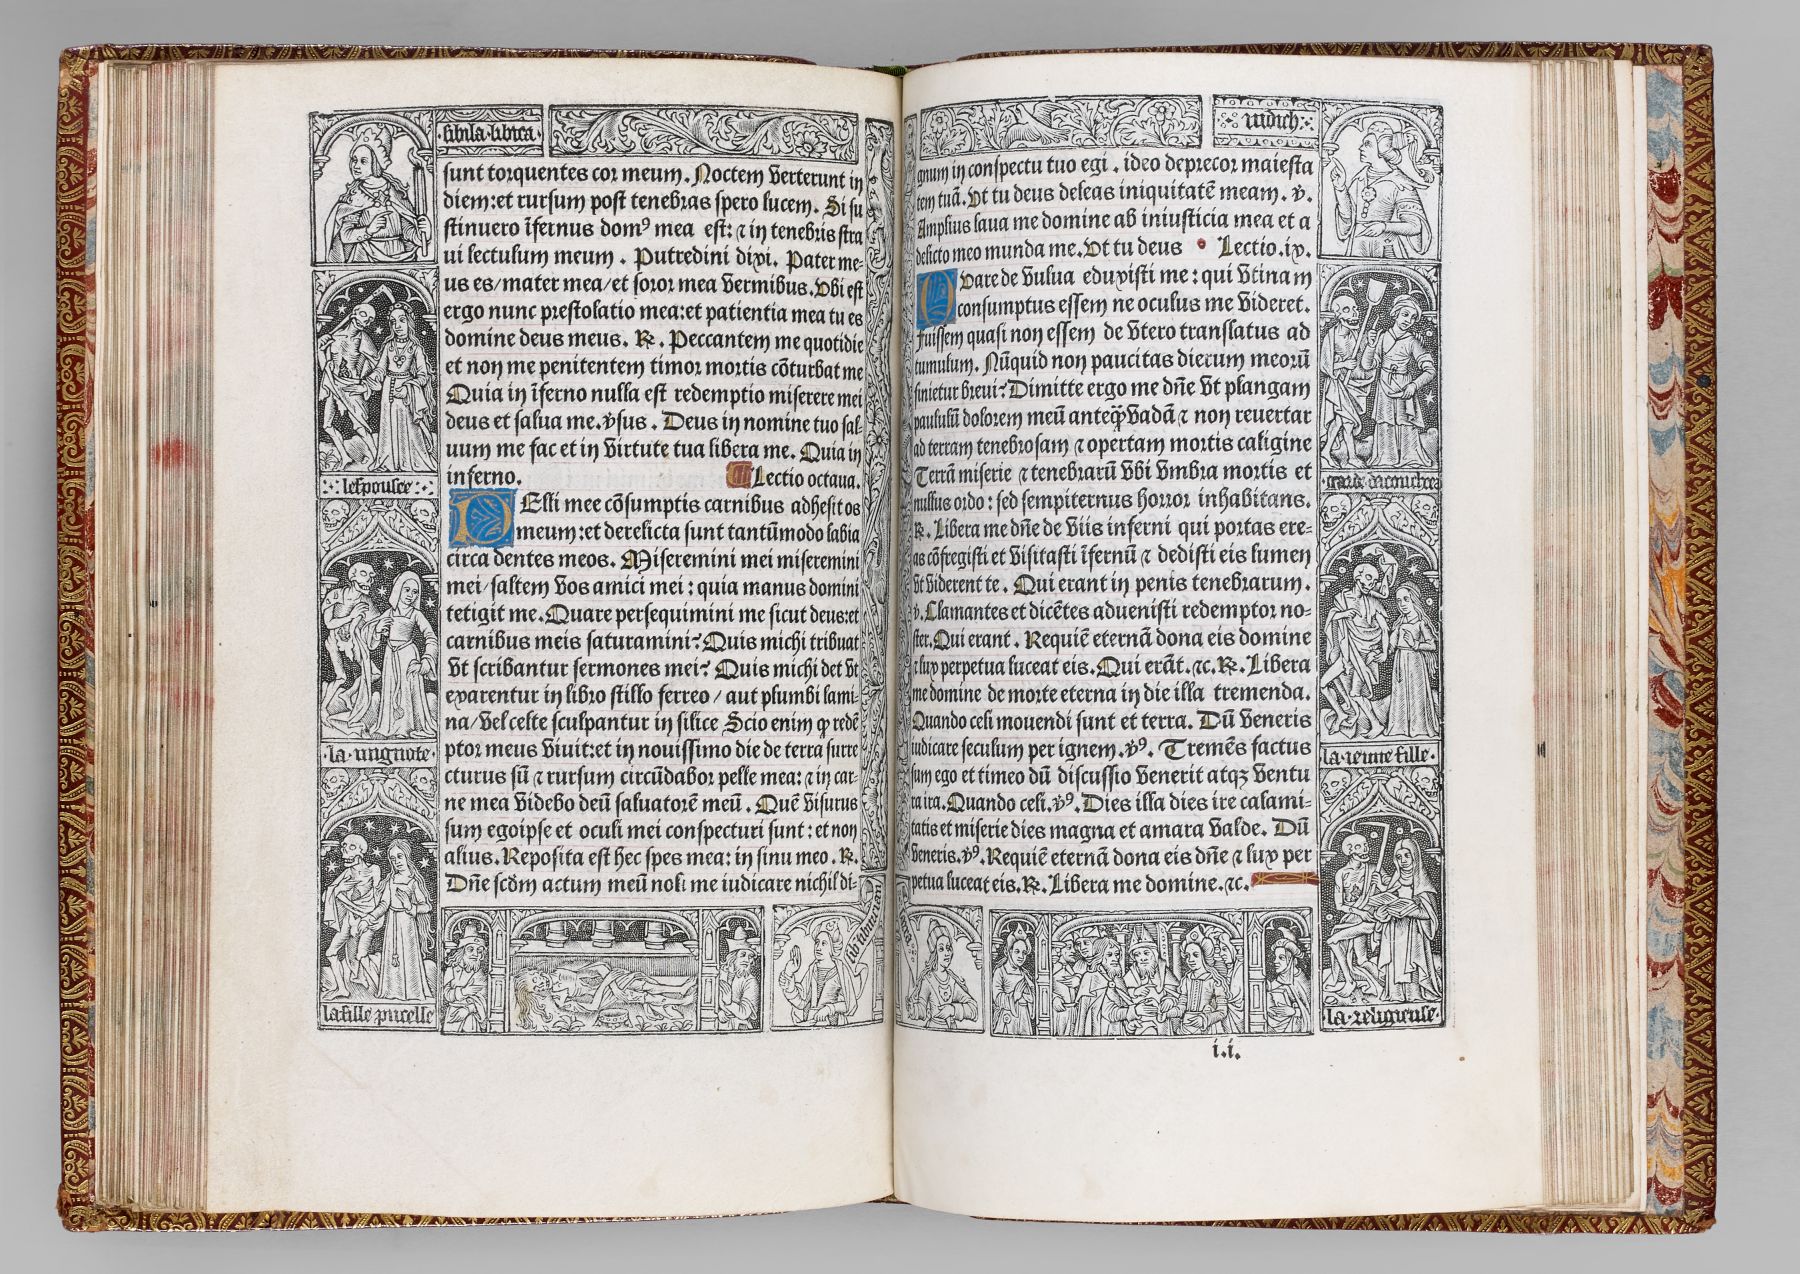 sibila·libica·
sunt torquentes cor meum. Noctem verterunt in
diem:et rursum post tenebras spero lucem. Si su
stinuero ĩfernus domꝰ mea est: ⁊ in tenebris stra
ui lectulum meum. Putredini dixi. Pater me-
us es/mater mea/et soror mea vermibus. Vbi est
ergo nunc prestolatio mea:et patientia mea tu es
domine deus meus. ℟. Peccantem me quotidie
et non me penitentem timor mortis cõturbat me
Quia in ĩferno nulla est redemptio miserere mei
deus et salua me. ꝟsus. Deus in nomine tuo sal-
uum me fac et in virtute tua libera me. Quia in
inferno. Lectio octaua.
PElli mee cõsumptis carnibus adhesit os
meum:et derelicta sunt tantũmodo labia
circa dentes meos. Miseremini mei miseremini
mei/saltem vos amici mei: quia manus domini
tetigit me. Quare persequimini me sicut deus:et
carnibus meis saturamini? Quis michi tribuat
vt scribantur sermones mei? Quis michi det vt
exarentur in libro stillo ferreo/aut plumbi lami-
na/vel celte sculpantur in silice Scio enim ꝙ redẽ
ptor meus viuit:et in nouissimo die de terra surre
cturus sũ ⁊ rursum circũdabor pelle mea: ⁊ in car-
ne mea videbo deũ saluatorẽ meũ. Quẽ visurus
sum egoipse et oculi mei conspecturi sunt: et non
alius. Reposita est hec spes mea: in sinu meo. ℟.
Dñe scđm actum meũ noli me iudicare nichil di-
:·lespousee:·
·la·mignote·
la fille pucelle
iudich
gnum in conspectu tuo egi. ideo deprecor maiesta
tem tuã. Vt tu deus deleas iniquitatẽ meam. ꝟ.
Amplius laua me domine ab iniusticia mea et a
delicto meo munda me. Vt tu deus Lectio.ix.
QVare de vulua eduxisti me: qui vtinam
consumptus essem ne oculus me videret.
fuissem quasi non essem de vtero translatus ad
tumulum. Nũquid non paucitas dierum meorũ
finietur breui? Dimitte ergo me dñe vt plangam
paululũ dolorem meũ anteq̃ vadã ⁊ non reuertar
ad terram tenebrosam ⁊ opertam mortis caligine
Terrã miserie ⁊ tenebrarũ vbi vmbra mortis et
nullus ordo: sed sempiternus horror inhabitans.
℟. Libera me dñe de viis inferni qui portas ere-
as cõfregisti et visitasti ĩfernũ ⁊ dedisti eis lumen
vt viderent te. Qui erant in penis tenebrarum.
ꝟ. Clamantes et dicẽtes aduenisti redemptor no-
ster. Qui erant. Requiẽ eternã dona eis domine
⁊ lux perpetua luceat eis. Qui erãt. ⁊c. ℟. Libera
me domine de morte eterna in die illa tremenda.
Quando celi mouendi sunt et terra. Dũ veneris
iudicare seculum per ignem. ꝟꝰ. Tremẽs factus
sum ego et timeo dũ discussio venerit atqꝫ ventu
ra ira. Quando celi. ꝟꝰ. Dies illa dies ire calami-
tatis et miserie dies magna et amara valde. Dũ
veneris. ꝟꝰ. Requiẽ eternã dona eis dñe ⁊ lux per
petua luceat eis. ℟. Libera me domine. ⁊c.
la·ieune fille·
·la·religieuse·
i.i.